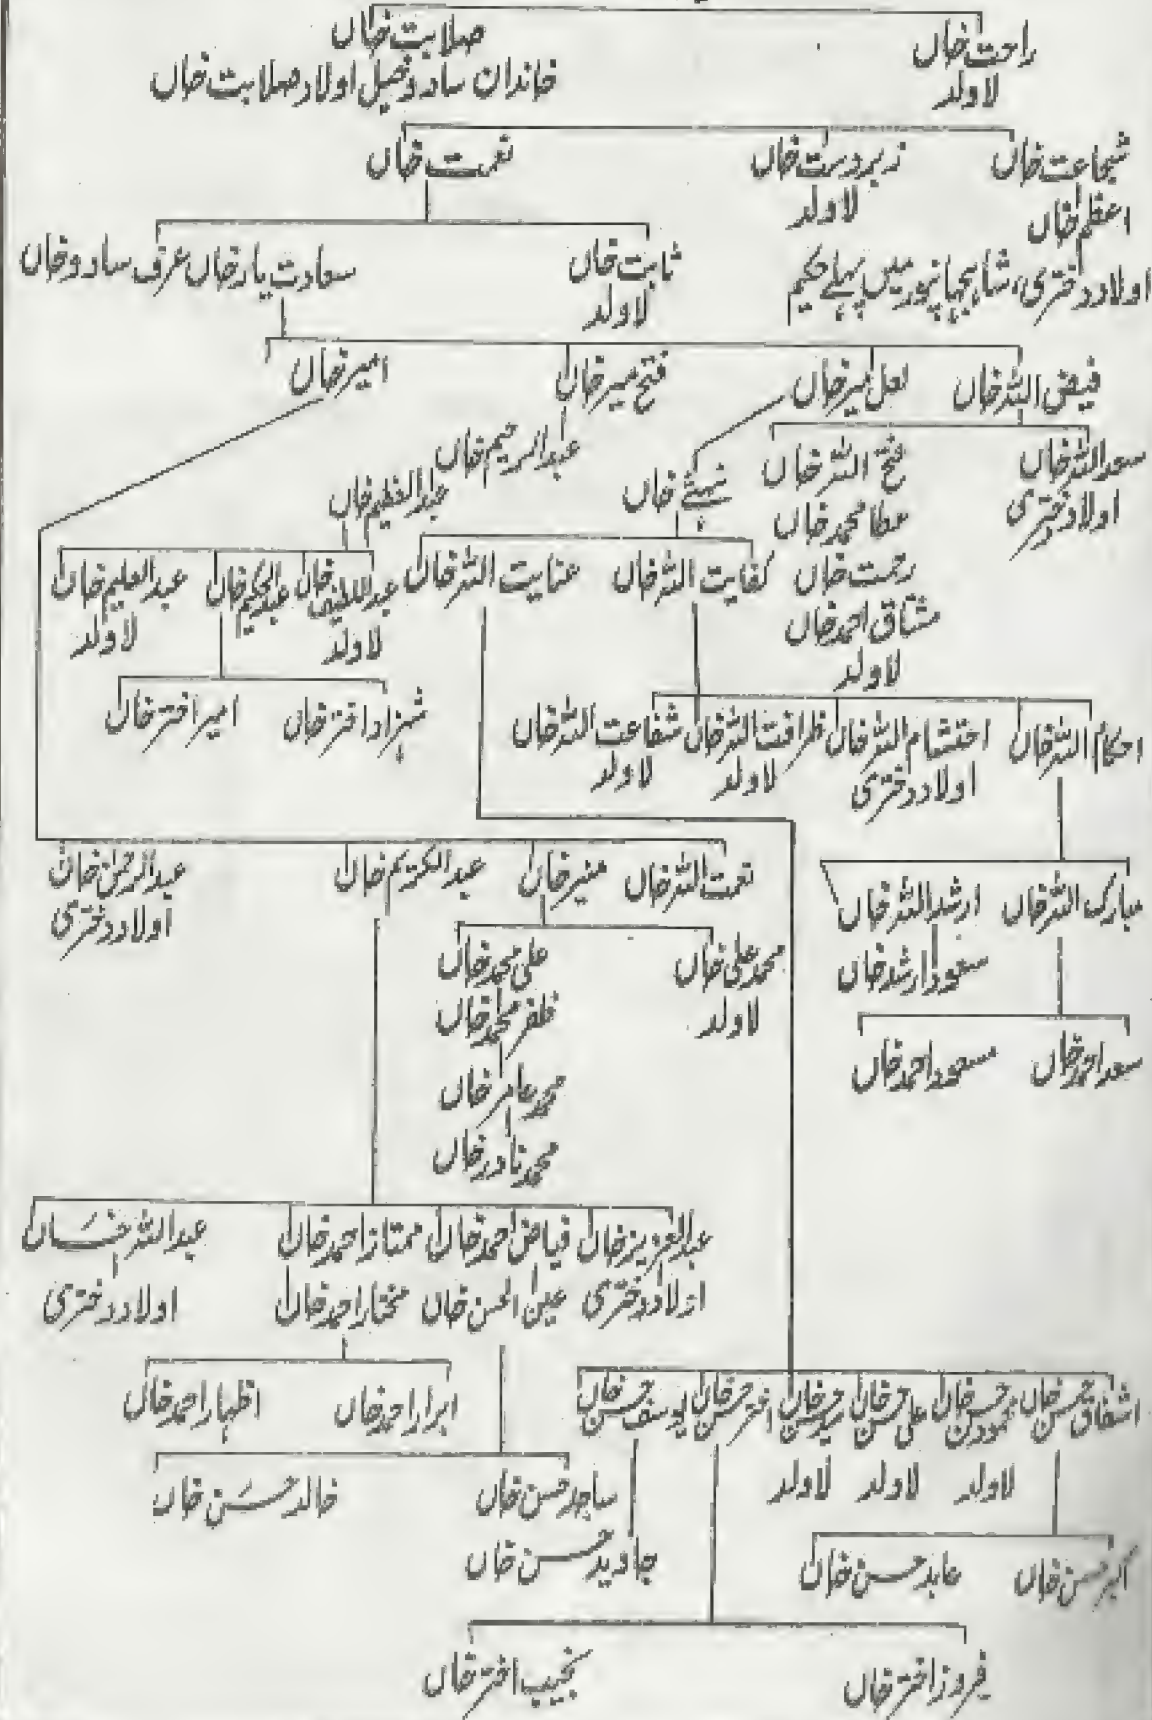 راحت خاں
لاولد
صلابت خاں
خاندان سادوخیل اولاد صلابت خاں
شجاعت خاں
اعظم خاں
اولاد دختری، شاہجہانپور میں پہلے حکیم
زبردست خاں
لاولد
نعمت خاں
ثابت خاں
لاولد
سعادت یار خاں عرف سادو خاں
فیض اللہ خاں
لعل میر خاں
فتح میر خاں
امیر خاں
سعد اللہ خاں
اولاد دختری
فتح اللہ خاں
عطا محمد خاں
رحمت خاں
مشتاق احمد خاں
لاولد
ننہے خاں
عبدالرحیم خاں
عبدالعظیم خاں
کفایت اللہ خاں
عنایت اللہ خاں
عبداللطیف خاں
لاولد
عبدالحکیم خاں
عبدالعلیم خاں
لاولد
شہزاد اختر خاں
امیر اختر خاں
احکام اللہ خاں
احتشام اللہ خاں
اولاد دختری
ظرافت اللہ خاں
لاولد
شفاعت اللہ خاں
لاولد
نعمت اللہ خاں
منیر خاں
عبدالکریم خاں
عبدالرحمٰن خاں
اولاد دختری
مبارک اللہ خاں
ارشد اللہ خاں
سعود ارشد خاں
محمد علی خاں
لاولد
علی محمد خاں
ظفر محمد خاں
محمد عامر خاں
محمد نادر خاں
سعد احمد خاں
مسعود احمد خاں
عبدالعزیز خاں
اولاد دختری
فیاض احمد خاں
عین الحسن خاں
ممتاز احمد خاں
مختار احمد خاں
عبداللہ خاں
اولاد دختری
ابرار احمد خاں
اظہار احمد خاں
اشفاق حسن خاں
محمود حسن خاں
لاولد
علی حسن خاں
لاولد
حسن خاں
لاولد
اختر حسن خاں
یوسف حسن خاں
ساجد حسن خاں
خالد حسن خاں
جاوید حسن خاں
اکبر حسن خاں
عابد حسن خاں
فیروز اختر خاں
نجیب اختر خاں